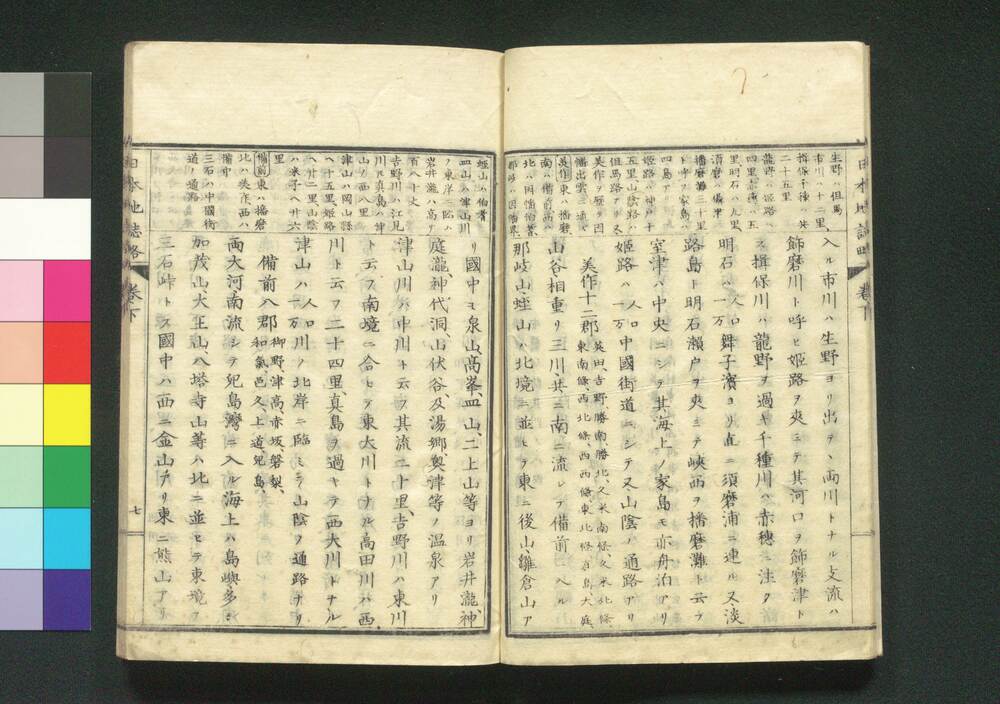 入ル市川ハ生野ヨリ出テ、両川トナル支流ハ
飾磨川ト呼ヒ姫路ヲ夾ミテ其河口ヲ飾磨津ト
ス揖保川ハ龍野ヲ過キ千種川ハ赤穂ニ注ク
明石ハ人口一万舞子濱ヨリ直ニ須磨浦ニ連ル又淡
路島ト明石瀬戸ヲ夾ミテ峡西ヲ播磨灘ト云フ
室津ハ中央ニシテ其海上ノ家島モ亦舟泊アリ
姫路ハ人口一万中國街道ニシテ又山陰ノ通路アリ
美作十二郡英田、吉野、勝南、勝北、久米南條、久米北條、東南條、西北條、西西條、東北條、真島、大庭、
山谷相重リ三川共ニ南ニ流レテ備前ニ入ル
那岐山、蛭山ハ北境ニ並ヒテ東ニ後山、雛倉山ア
リ國中ヨ泉山、高峯、皿山、二上山等ヨリ岩井瀧、神
庭瀧、神代洞、山伏谷、及湯郷、奥津等ノ温泉アリ
津山川ハ中川ト云フ其流二十里、吉野川ハ東川
ト云フ南境ニ合ヒテ東大川トナル高田川ハ西
川ト云フ二十四里、真島ヲ過キテ西大川トナル
津山ハ人口一万川ノ北岸ニ臨ミテ山陰ヲ通路ナリ
備前八郡御野、津高、赤坂、磐梨、和氣、邑久、上道、兒島、
両大河、南流シテ兒島灣ニ入ル海上ハ島嶼多シ
加茂山、大王山、八塔寺山等ハ北ニ並ヒテ東境ヲ
三石峠トス國中ハ西ニ金山アリ東ニ熊山アリ
生野ハ但馬
市川ハ十二里
揖保千種ハ共
二十五里
播磨灘三十里
五里山陰路ハ
但馬路アリ
美作ヨ歴テ因
幡出雲ニ通ス
美作東ハ播磨
南ハ備前西ハ
北ハ因幡伯耆
蛭山ハ伯耆
皿山ハ津山川
ノ東岸ニ臨ム
岩井瀧ハ高サ
百八十丈
吉野川ハ江見
川ト真島ハ津
山ノ西ハ八里
津山ハ岡山縣
ヘ十五里姫路
ヘ廿二里山陰
ハ米子ヘ廿六
里
備前東ハ播磨
北ハ美作西ハ
備中
三石ハ中國街
道ノ通路
日本地誌略
巻下
七